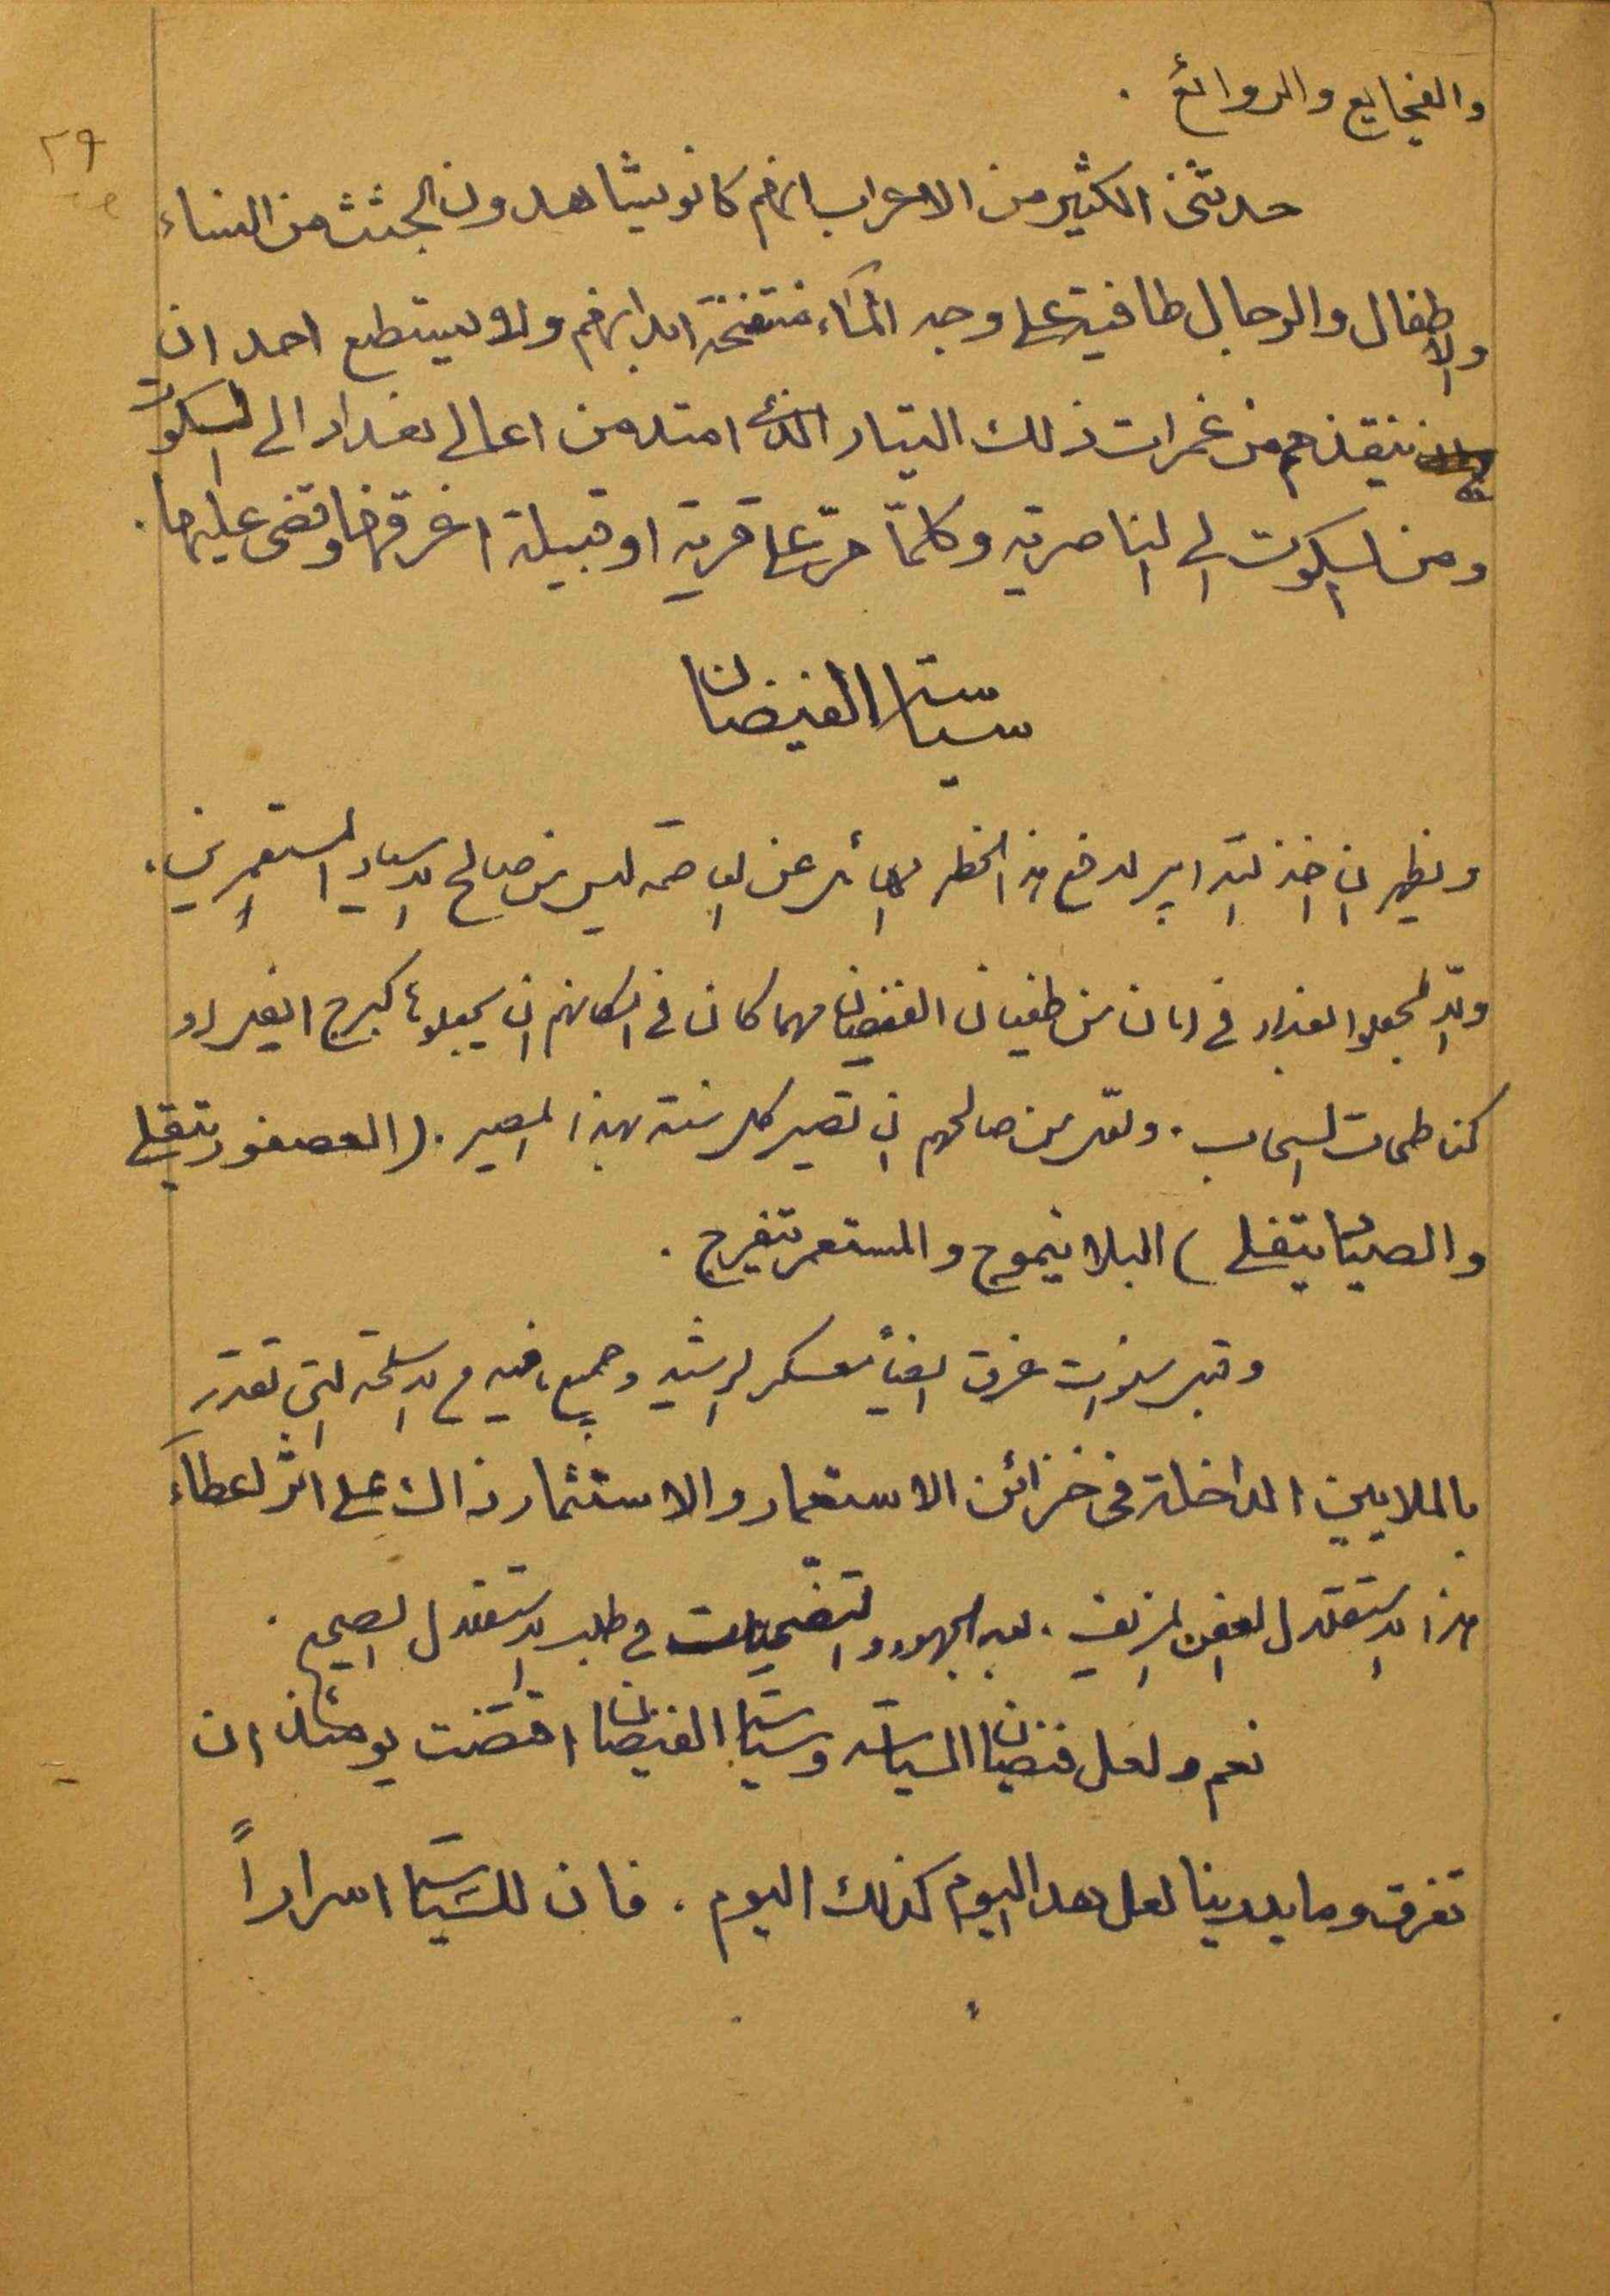 ٢٩
والفجايع والروائع .
حدثني الكثير من الاعراب انهم كانو يشاهدون الجثث من النساء
والاطفال والرجال طافية على وجه المآء منتفخة ابدانهم ولا يستطع احد ان
ينقذهم من غمرات ذلك التيار الذي امتد من اعالي بغداد الى الكوت
ومن الكوت الى الناصرية وكلمّا مرّ على قرية او قبيلة اغرقها وقضى عليها .
سياسة الفيضان
ويظهر ان اخذ التدابير لدفع هذا الخطر الهائل عن العاصمة ليس من صالح الاسياد المستعمرين .
والا لجعلوا بغداد في امان من طغيان الفيضان مهما كان في امكانهم ان يجعلوها كبرج ايفل او
كناطحات السحاب . ولعل من صالحهم ان تصير كل سنة بهذا المصير . ( العصفور يتفلى
والصياد يتقلى ) البلاد يتموج والمستعمر يتفرج .
وقبل سنوات غرق ايضاً معسكر الرشيد وجميع ما فيه من الاسلحة التي تقدر
بالملايين الداخلة في خزائن الاستعمار والاستثمار ذاك على اثر اعطآء
هذا الاستقلال العفن المزيف . بعد الجهود والتضحيات في طلب الاستقلال الصحيح .
نعم ولعل فيضان السياسة وسياسة الفيضان اقتضت يومئذ ان
تغرق وما يدرينا لعل هذا اليوم كذلك اليوم . فان للسياسة اسراراً